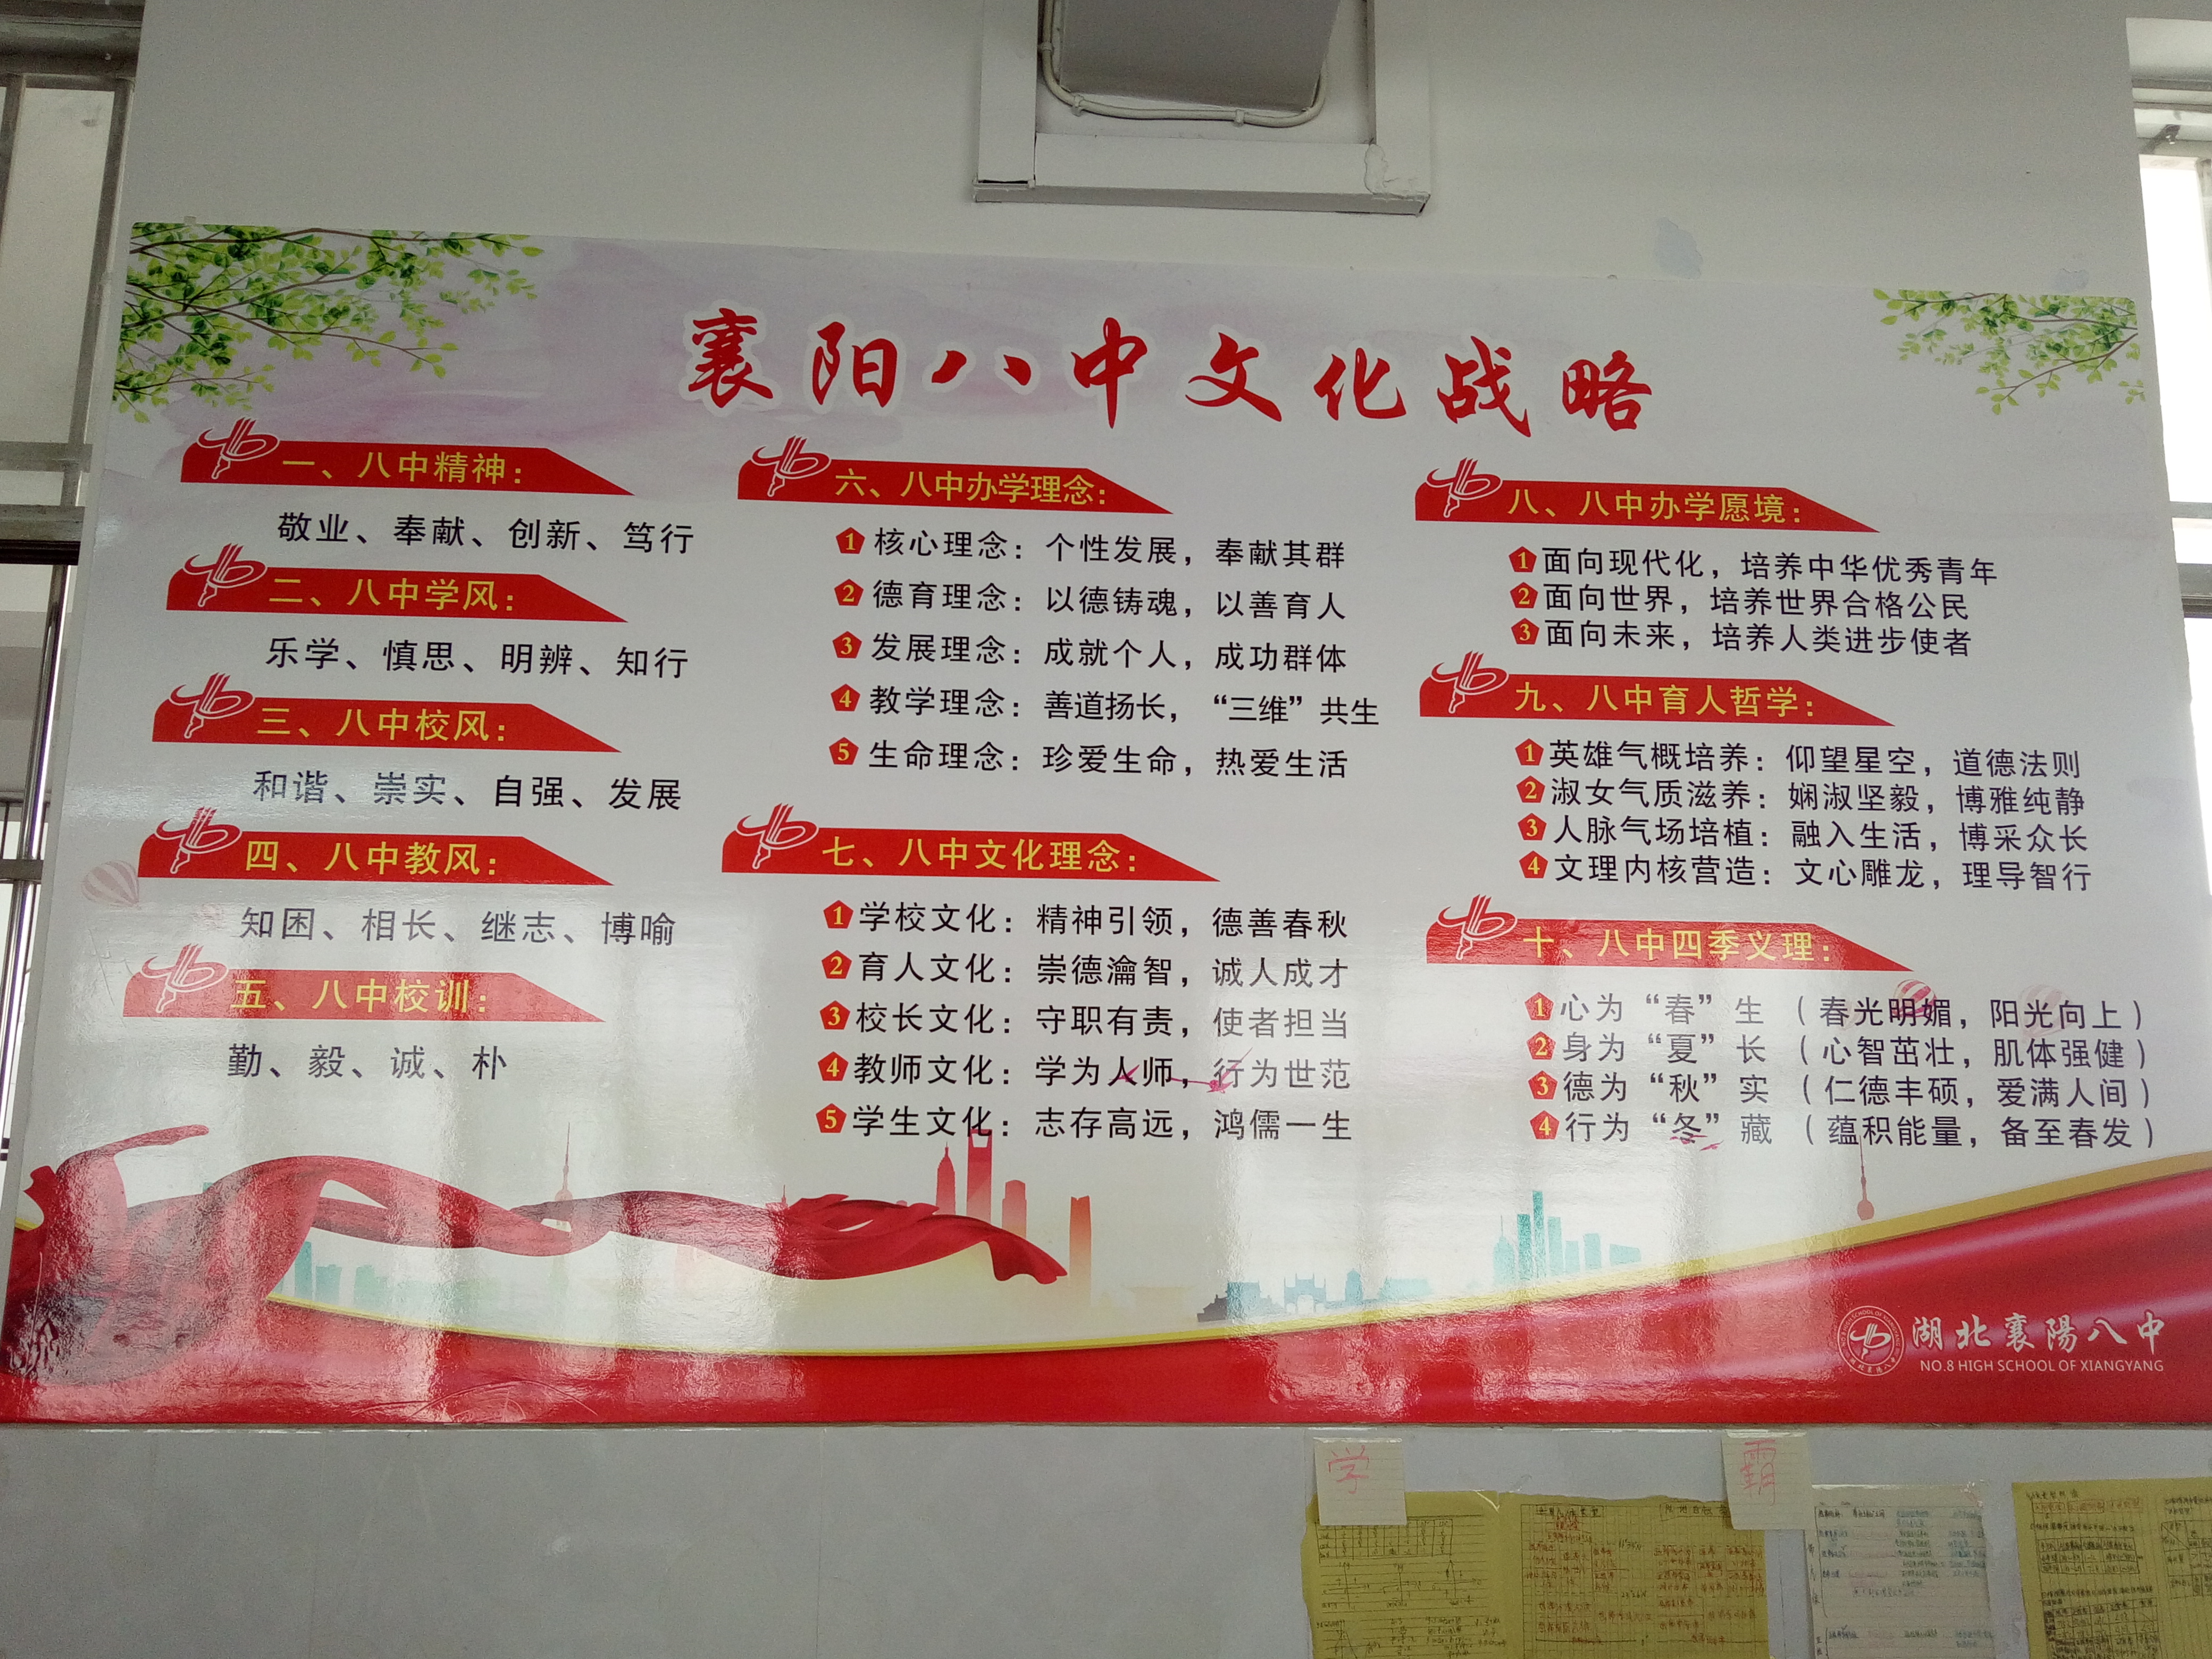 襄阳八中文化战略
一、八中精神：
敬业、奉献、创新、笃行
二、八中学风：
乐学、慎思、明辨、知行
三、八中校风：
和谐、崇实、自强、发展
四、八中教风：
知困、相长、继志、博喻
五、八中校训：
勤、毅、诚、朴
六、八中办学理念：
1 核心理念：个性发展，奉献其群
2 德育理念：以德铸魂，以善育人
3 发展理念：成就个人，成功群体
4 教学理念：善道扬长，“三维”共生
5 生命理念：珍爱生命，热爱生活
七、八中文化理念：
1 学校文化：精神引领，德善春秋
2 育人文化：崇德瀹智，诚人成才
3 校长文化：守职有责，使者担当
4 教师文化：学为人师，行为世范
5 学生文化：志存高远，鸿儒一生
八、八中办学愿境：
1 面向现代化，培养中华优秀青年
2 面向世界，培养世界合格公民
3 面向未来，培养人类进步使者
九、八中育人哲学：
1 英雄气概培养：仰望星空，道德法则
2 淑女气质滋养：娴淑坚毅，博雅纯静
3 人脉气场培植：融入生活，博采众长
4 文理内核营造：文心雕龙，理导智行
十、八中四季义理：
1 心为“春”生（春光明媚，阳光向上）
2 身为“夏”长（心智茁壮，肌体强健）
3 德为“秋”实（仁德丰硕，爱满人间）
4 行为“冬”藏（蕴积能量，备至春发）
湖北襄陽八中
NO.8 HIGH SCHOOL OF XIANGYANG
学
霸